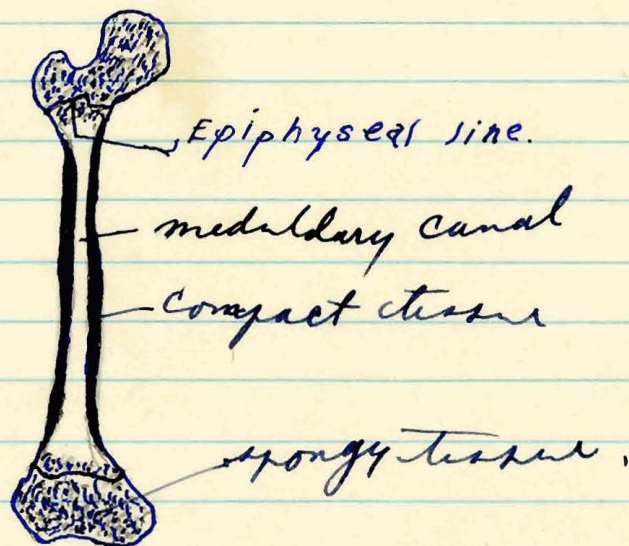 Epiphyseal line.
medullary canal
compact tissue
spongy tissue.